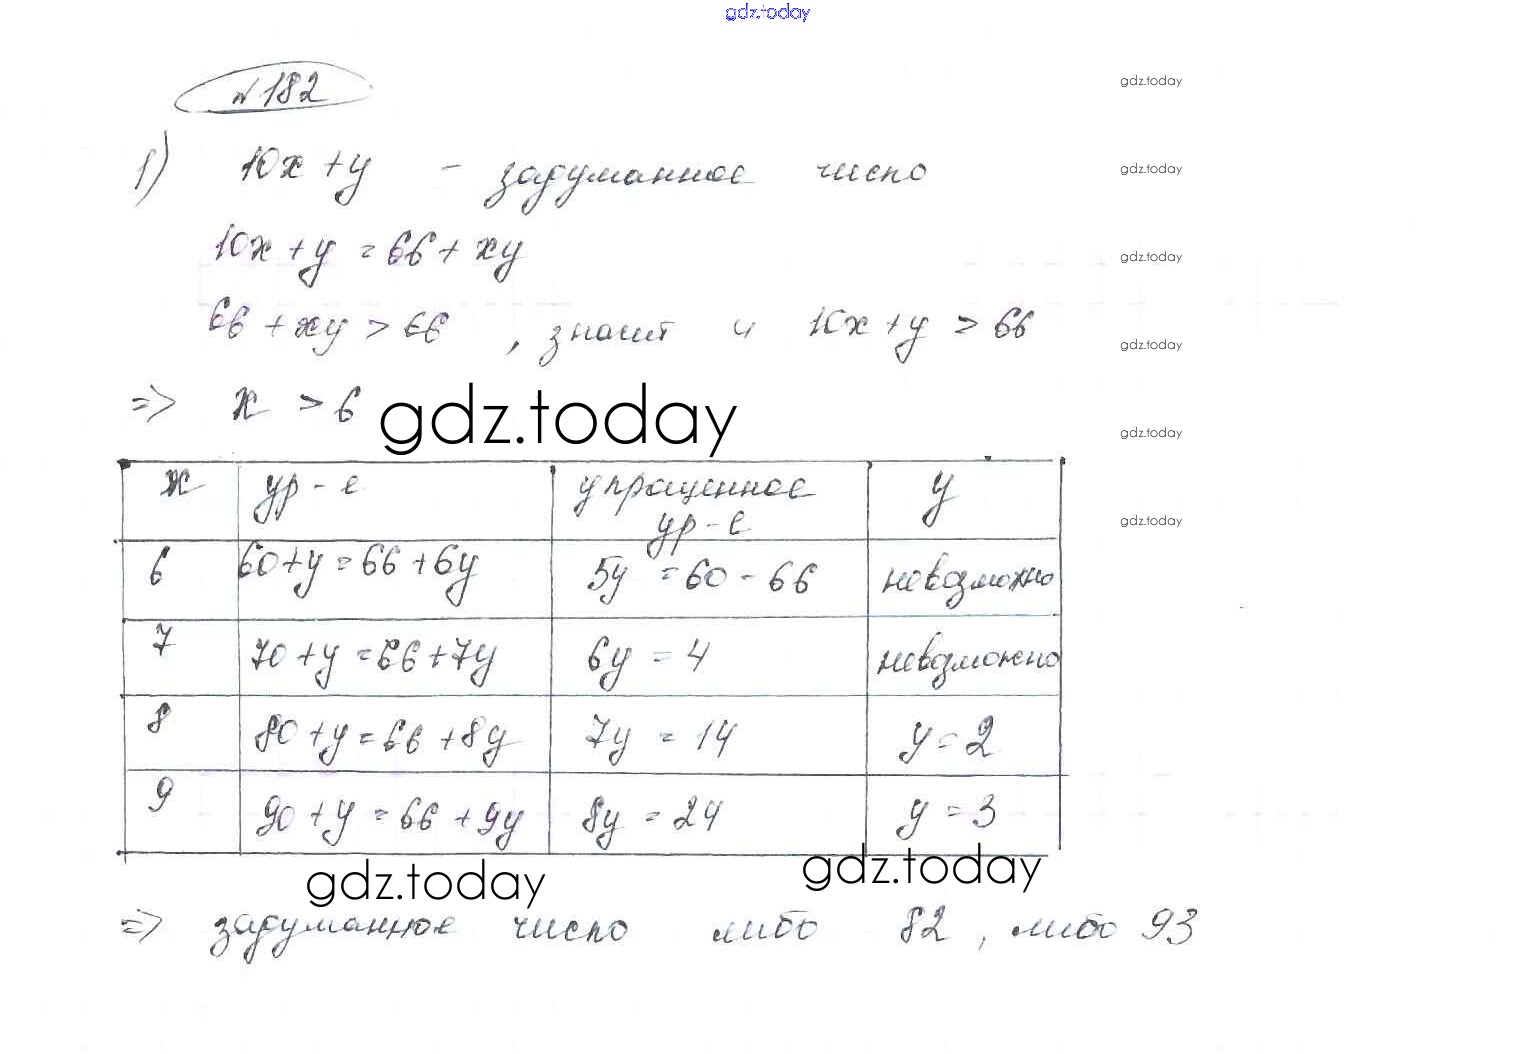 gdz.today
№182
gdz.today
1) 10x + y - задуманное число
gdz.today
10x + y = 66 + xy
gdz.today
66 + xy > 66, значит и 10x + y > 66
gdz.today
=> x > 6
gdz.today
gdz.today
x ур-е упрощенное ур-е y
gdz.today
6 60+y=66+6y 5y = 60 - 66 невозможно
7 70+y=66+7y 6y = 4 невозможно
8 80+y=66+8y 7y = 14 y=2
9 90+y=66+9y 8y = 24 y=3
gdz.today
gdz.today
=> задуманное число либо 82, либо 93